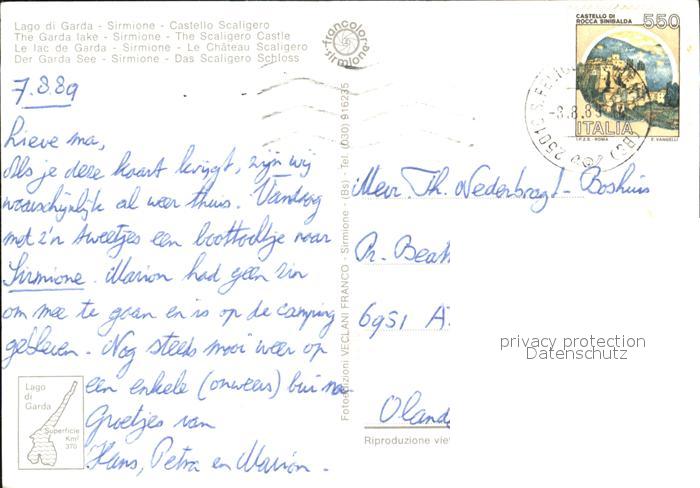 Lago di Garda - Sirmione - Castello Scaligero
The Garda lake - Sirmione - The Scaligero Castle
Le lac de Garda - Sirmione - Le Château Scaligero
Der Garda See - Sirmione - Das Scaligero Schloss
francolor
sirmione
CASTELLO DI
ROCCA SINIBALDA
550
ITALIA
I.P.Z.S. - ROMA
E. VANGELLI
25010 S. FELICE
-8.8.89
(BS)
7.8.89
Lieve ma,
Als je deze kaart krijgt, zijn wij
waarschijnlijk al weer thuis. Vandaag
met z'n tweetjes een boottochtje naar
Sirmione. Marion had geen zin
om mee te gaan en is op de camping
gebleven. Nog steeds mooi weer op
een enkele (onweers) bui na
Groetjes van
Hans, Petra en Marion.
Lago
di
Garda
Superficie
Km²
370
Fotoedizioni VECLANI FRANCO - Sirmione - (Bs) - Tel. (030) 916235
Mevr. Th. Nederbragt - Boshuis
Pr. Beat
6951 A
Oland
Riproduzione vie
privacy protection
Datenschutz